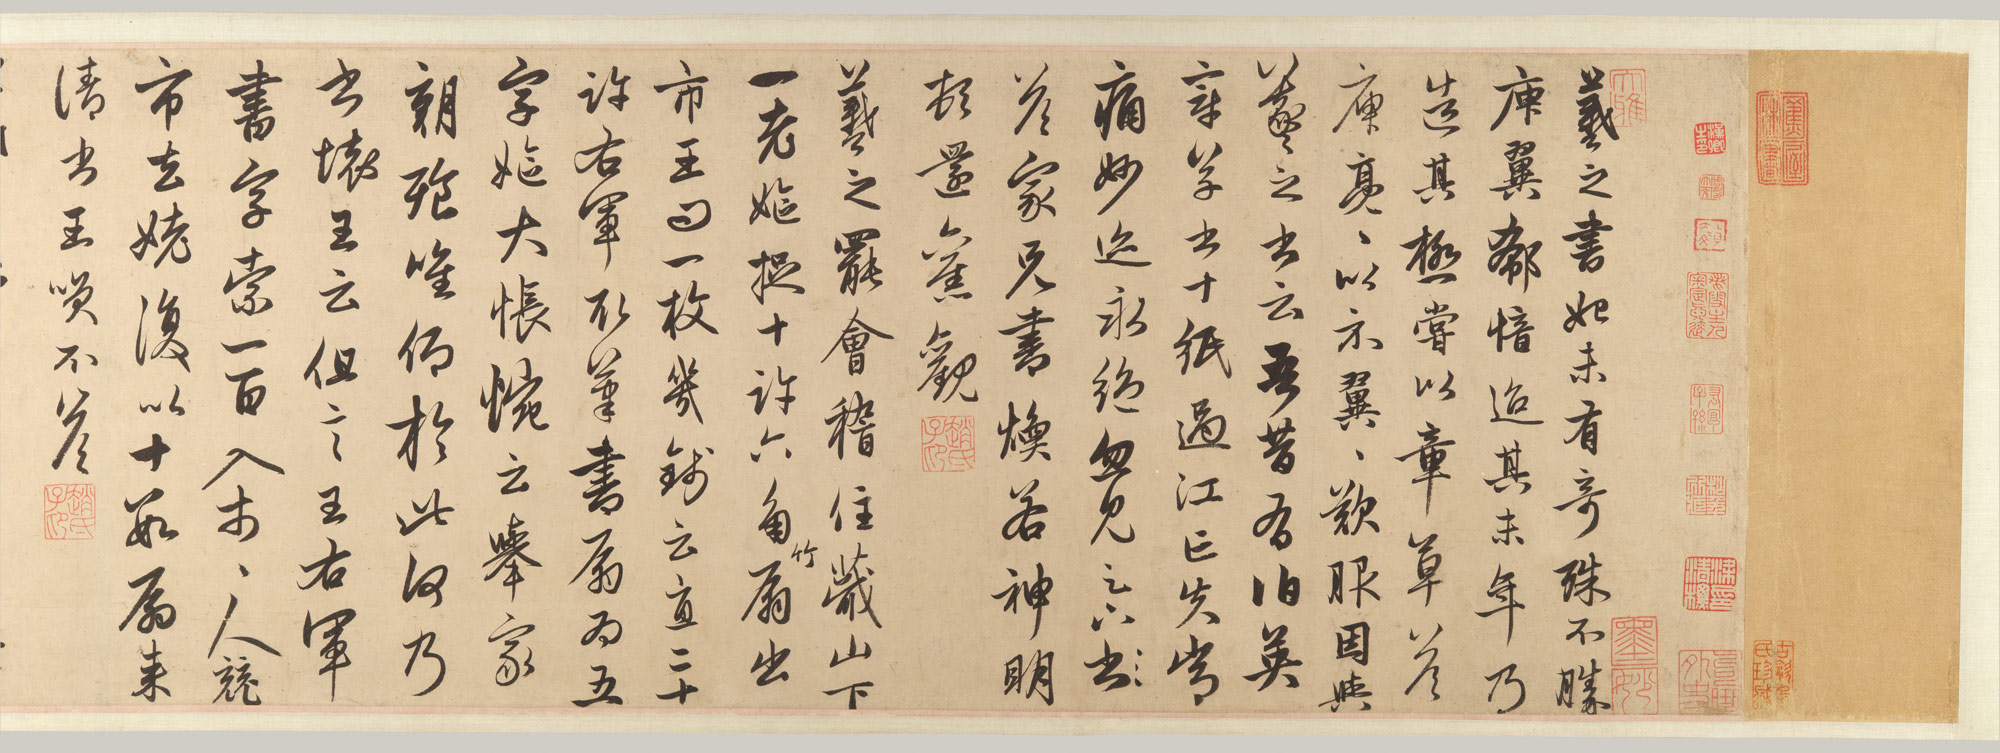 羲之書始未有奇殊不勝
庾翼郗愔迨其末年乃
造其極嘗以章草答
庾亮、以示翼、歎服因與
羲之書云吾昔有伯英
章草書十紙過江亡失常
痛妙迹永絕忽見足下書
答家兄書煥若神明
頓還舊觀
羲之罷會稽住蕺山下
一老嫗捉十許六角竹扇出
市王問一枚幾錢云直二十
許右軍取筆書扇為五
字嫗大悵惋云舉家
朝飡唯仰於此何乃
書壞王云但言王右軍
書字索一百入市、人競
市去姥復以十數扇来
請書王笑不答
趙氏子昂
趙氏子昂
大雅
墨妙